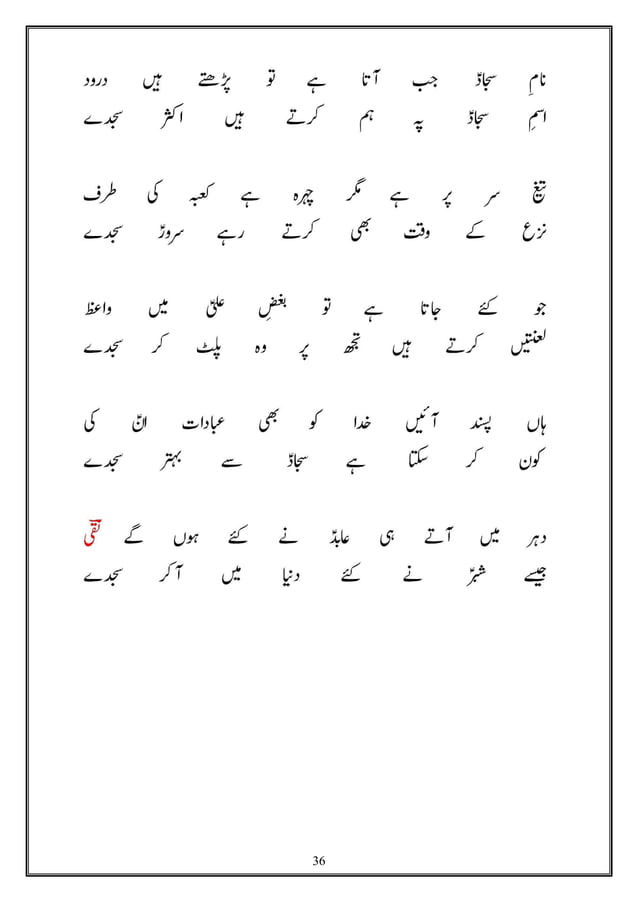 نامِ سجادؑ جب آتا ہے تو پڑھتے ہیں درود
اسمِ سجادؑ پہ ہم کرتے ہیں اکثر سجدے
تیغ سر پر ہے مگر چہرہ ہے کعبہ کی طرف
نزع کے وقت بھی کرتے رہے سرورؑ سجدے
جو کئے جاتا ہے تو بغضِ علیؑ میں واعظ
لعنتیں کرتے ہیں تجھ پر وہ پلٹ کر سجدے
ہاں پسند آئیں خدا کو بھی عبادات انؑ کی
کون کر سکتا ہے سجادؑ سے بہتر سجدے
دہر میں آتے ہی عابدؑ نے کئے ہوں گے تقیؔ
جیسے شبرؑ نے کئے دنیا میں آ کر سجدے
36